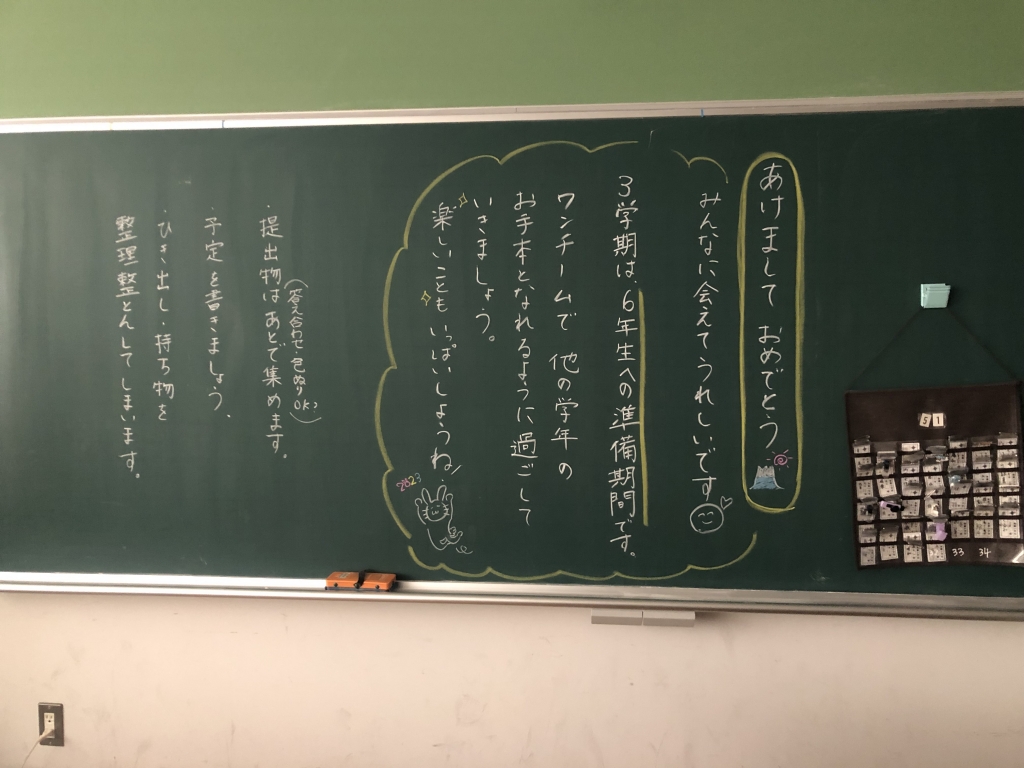 あけまして おめでとう
みんなに会えてうれしいです
3学期は、6年生への準備期間です。
ワンチームで 他の学年の
お手本となれるように過ごして
いきましょう。
楽しいことも いっぱいしようね!
2023
・提出物はあとで集めます。
(答え合わせ・色ぬりOK)
・予定を書きましょう。
・ひき出し・持ち物を
整理整とんしてしまいます。
51
33 34